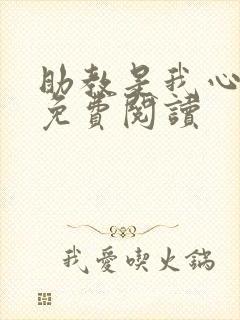 助教是我心
免費閱讀
我愛喫火鍋